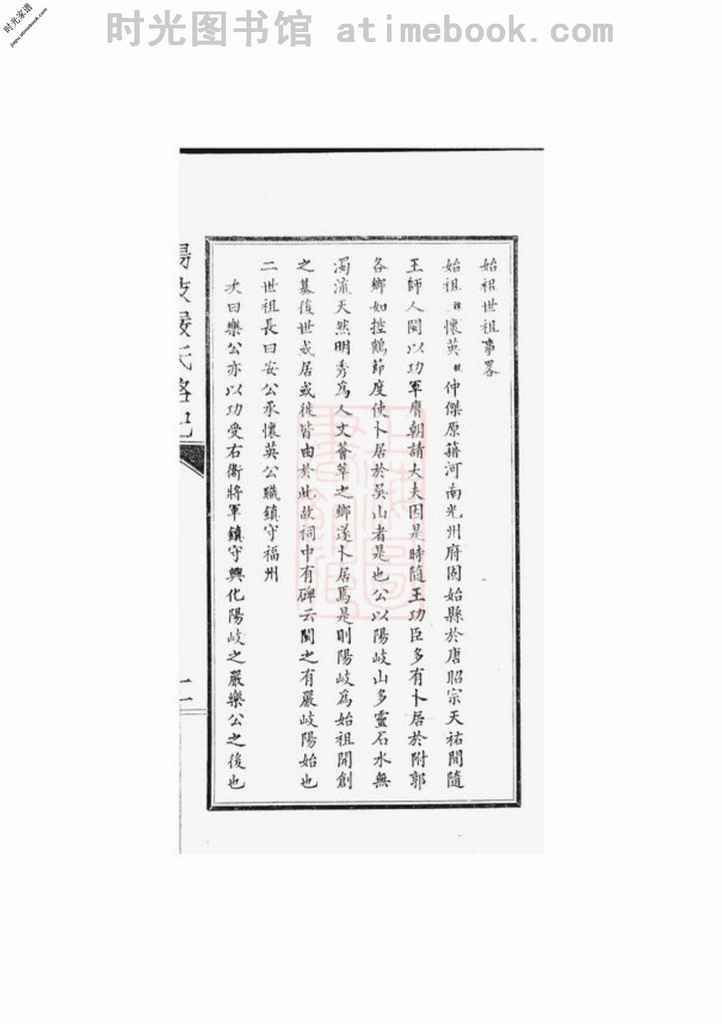 时光图书馆 atimebook.com
时光家谱
jiapu.atimebook.com
始祖世祖事畧
始祖諱懷英號仲傑原籍河南光州府固始縣於唐昭宗天祐間隨
王師人閩以功軍膺朝請大夫因是時随王功臣多有卜居於附郭
各鄉如控鶴節度使卜居於吳山者是也公以陽岐山多靈石水無
濁流天然明秀為人文薈萃之鄉遂卜居焉是則陽岐為始祖開創
之基後世或居或徙皆由於此故祠中有碑云閩之有嚴岐陽始也
二世祖長曰安公承懷英公職鎮守福州
次曰樂公亦以功受右衛將軍鎮守興化陽岐之嚴樂公之後也
陽岐嚴氏略記
二